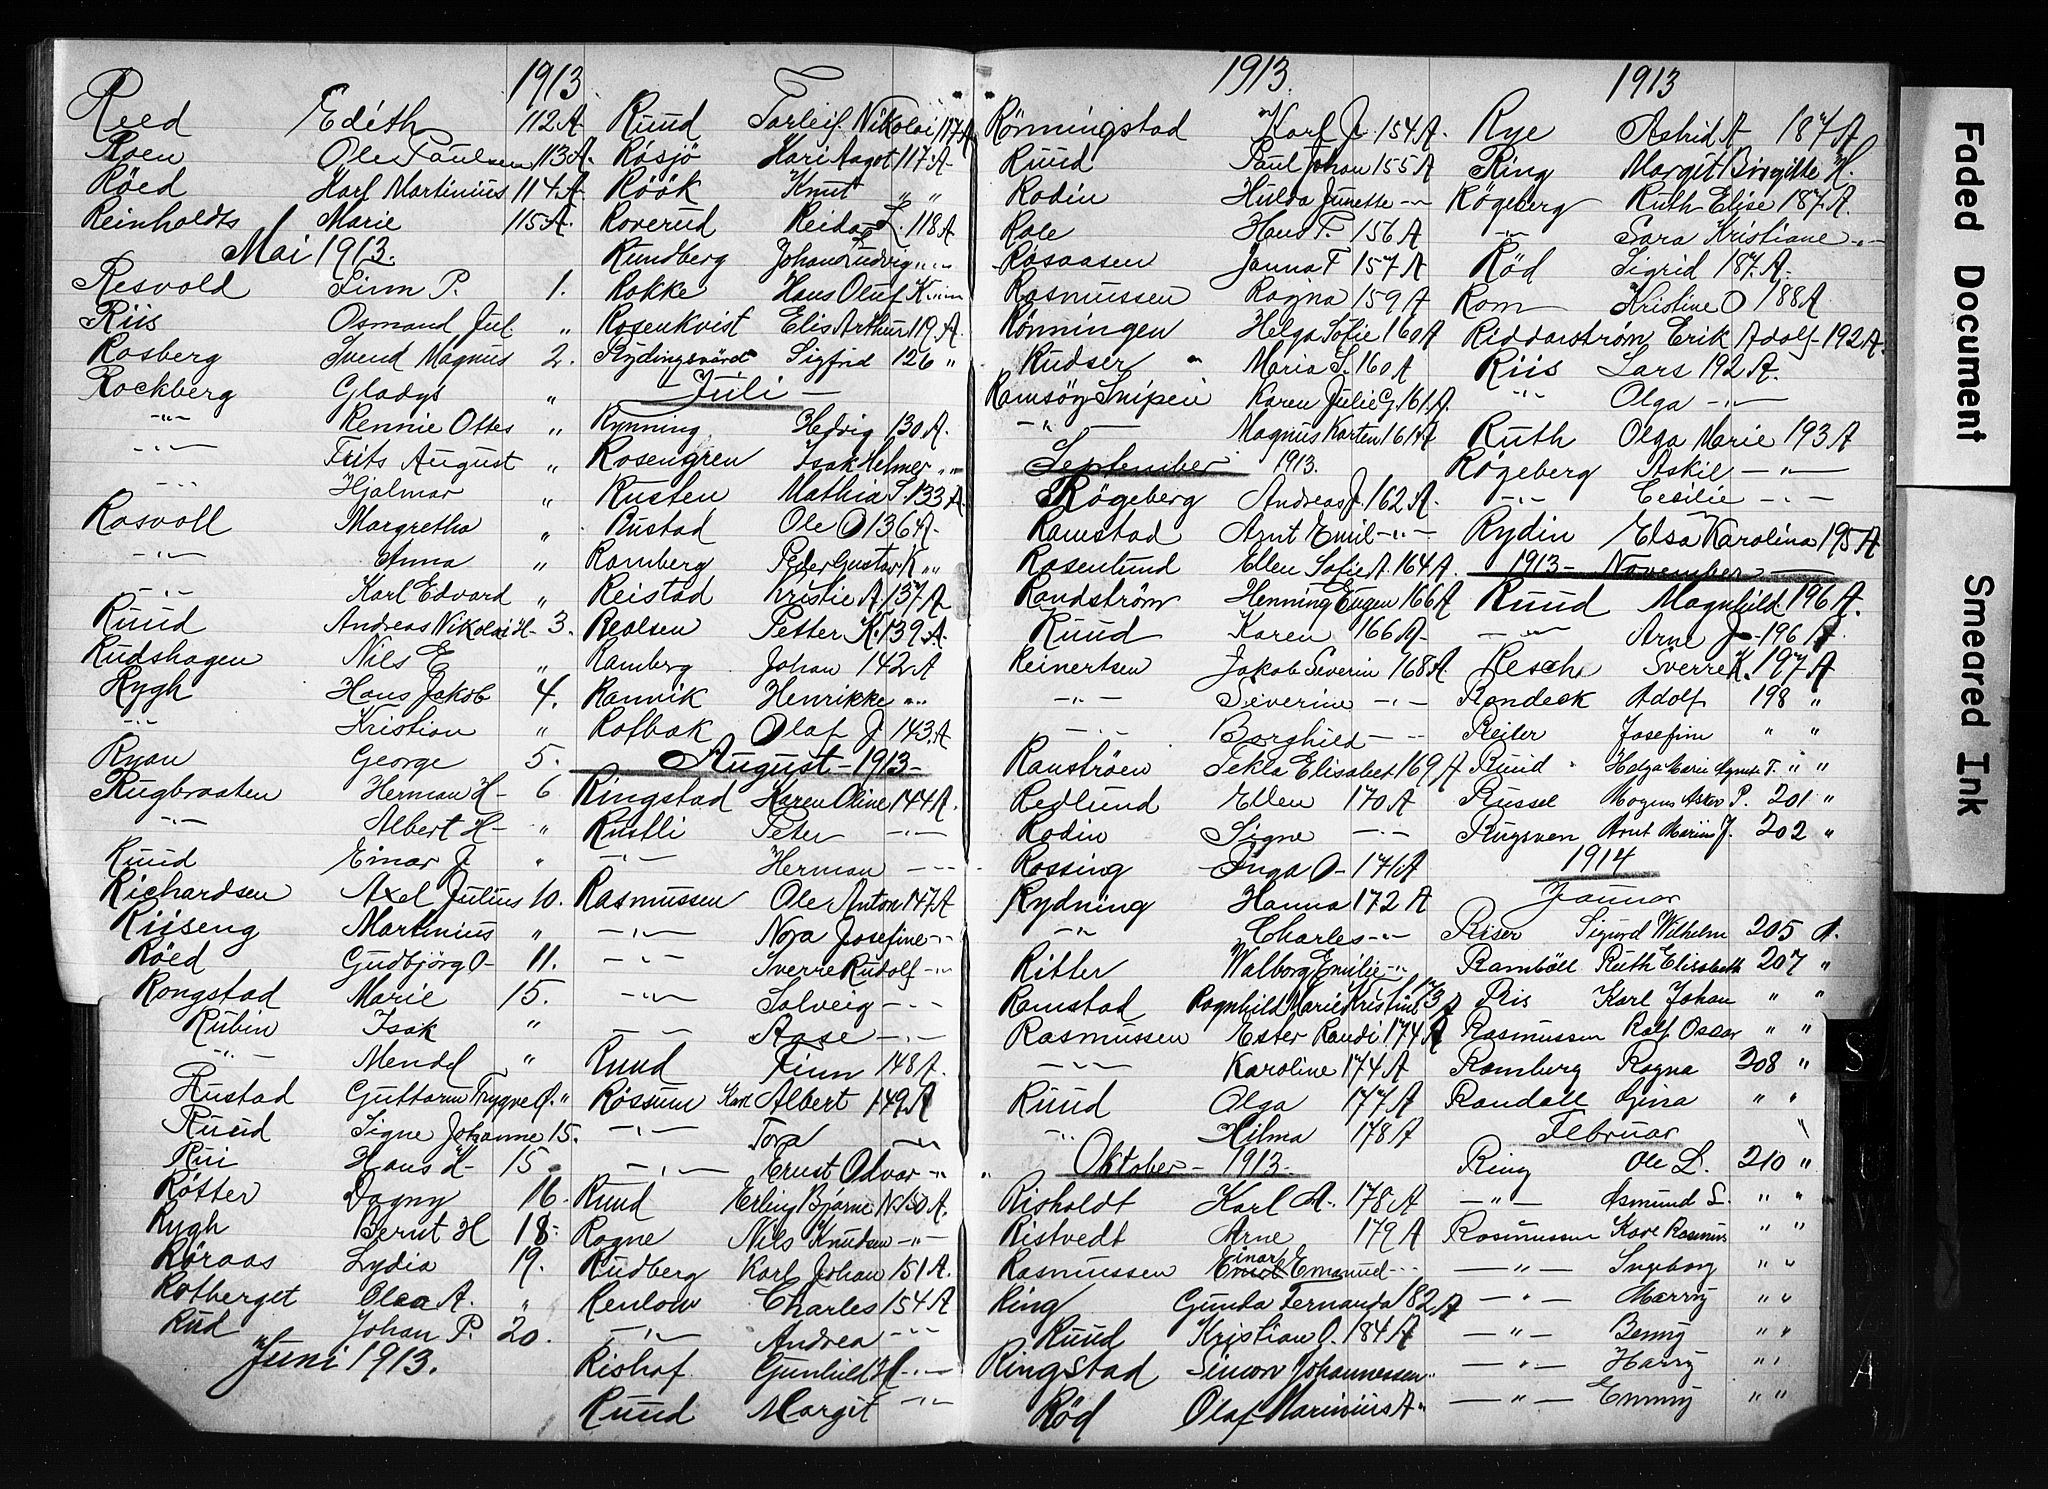 1913
Reed Edith 112.A
Roen Ole Paulsen 113.A.
Röed Karl Martinius 114.A
Reinholdts Marie 115.A.
Mai 1913.
Resvold Finn P. 1.
Riis Osmand Jul. "
Rosberg Svend Magnus 2.
Rockberg Gladys "
-"- Rennie Ottes "
-"- Frits August "
-"- Hjalmar "
Rosvoll Margretha "
-"- Anna "
-"- Karl Edvard "
Ruud Andreas Nikolai H- 3.
Rudshagen Nils E "
Rygh Hans Jakob 4.
-"- Kristian "
Ryan George 5.
Rugbraaten Herman H- 6
-"- Albert H- "
Ruud Einar J. "
Richardsen Axel Julius 10.
Riiseng Martinius "
Röed Gudbjörg O- 11.
Rongstad Marie 15.
Rubin Isak "
-"- Mendel "
Rustad Guttorm Trygve O. "
Ruud Signe Johanne 15.
Rui Hans H- 15
Rötter Dagny 16.
Rygh Bernt H 18-
Röraas Lydia 19.
Rotberget Olea A. "
Rud Johan P. 20.
Juni 1913.
Ruud Torleif Nikolai 117A
Rösjö Kari Aagot 117.A
Röök Knut " "
Roverud Reidar L. 118A
Rundberg Johan Ludvig "-"-
Rokke Hans Oluf K "-"-
Rosenkvist Elis Arthur 119.A.
Rydingsvärd Sigfrid 126 "
Juli -
Rynning Hedvig 130 A.
Rosengren Isak Helmer " "
Rusten Mathia S. 133 A.
Rustad Ole O 136 A-
Ramberg Peder Gustav K " "
Reistad Kristie A. 137 A
Realsen Petter K. 139.A-
Ramberg Johan 142 A
Ranvik Henrikke " "
Rotbak Olaf J 143.A
August - 1913 -
Ringstad Karen Oline 144 A.
Rustli Peter -"-
-"- Herman -"-
Rasmussen Ole Anton 147A
-"- Nora Josefine -"-
-"- Sverre Rudolf -"-
-"- Solveig -"-
-"- Aase -"-
Ruud Finn 148 A.
Rössum Karl Albert 149 A
-"- Tora -"-
-"- Ernst Odvar -"-
Ruud Erling Bjarne N. 150 A.
Rogne Nils Knudsen -"-
Rudberg Karl Johan 151 A.
Renlow Charles 154 A
-"- Andrea -"-
Rishof Gunhild H -"-
Ruud Margit -"-
1913.
Rönningstad Karl J. 154.A.
Ruud Paul Johan 155 A
Rodin Hulda Junette -"-
Role Hans T. 156 A
Rosaasen Janna F 157 A
Rasmussen Ragna 159 A
Rönningen Helga Sofie 160 A
Rudser " Maria S. 160 A
Ramsöy Snipen Karen Julie G. 161 A.
-"- Magnus Karten 161 A
September 1913.
Rögeberg Andreas J. 162.A.
Ramstad Arnt Emil -"-
Rosenlund Ellen Sofie A. 164 A.
Randström Henning Eugen 166 A
Ruud Karen 166 A-
Reinertsen Jakob Severin 168.A
-"- Severine -"-
-"- Borghild -"-
Ranströen Tekla Elisabet 169 A
Redlund Ellen 170 A
Rodin Signe -"-
Rossing Inga O- 171.A
Rydning Hanna 172 A
-"- Charles -"-
Ritter Walborg Emilie -"-
Ramstad Ragnhild Marie Kristine 173 A
Rasmussen Ester Randi 174 A
-"- Karoline 174 A
Ruud Olga 177 A
-"- Hilma 178 A
Oktober - 1913-
Risholdt Karl A. 178.A
Ristvedt Arne 179 A
Rasmussen Einar Emanuel -"-
Ring Gunda Fernanda 182 A
Ruud Kristian O. 184 A
Ringstad Simon Johannessen "
Röd Olaf Marinius A- "
1913
Rye Astrid A 187 A
Ring Margit Birgitte H.
Rögeberg Ruth Elise 187 A.
-"- Sara Kristiane -"-
Röd Sigrid 187. A-
Rom Kristine O 188 A
Riddarström Erik Adolf- 192 A.
Riis Lars 192 A.
-"- Olga -"-
Ruth Olga Marie 193 A
Rögeberg Askil -"-
-"- Cesilie -"-
Rydin Elsa Karolina 195 A
1913 - November -
Ruud Magnhild 196 A.
-"- Arne J- 196 A
Resch Sverre K. 197 A
Randeck Adolf 198 "
Reiler Josefine " "
Ruud Helga Marie Agnete T. " "
Russel Mogens Asker P. 201 "
Rugsven Arnt Marius J. 202 "
1914
Januar
Riser Sigurd Wilhelm 205 A.
Ramböll Ruth Elisabeth 207 "
Ris Karl Johan " "
Rasmussen Ralf Oscar " "
Romberg Ragna 208 "
Randall Gina " "
Februar "
Ring Ole L. 210 "
-"- Asmund S. " "
Rasmussen Kare Rasmus " "
-"- Ingeborg " "
-"- Marry " "
-"- Benny " "
-"- Harry " "
-"- Emmy " "
Faded Document
Smeared Ink